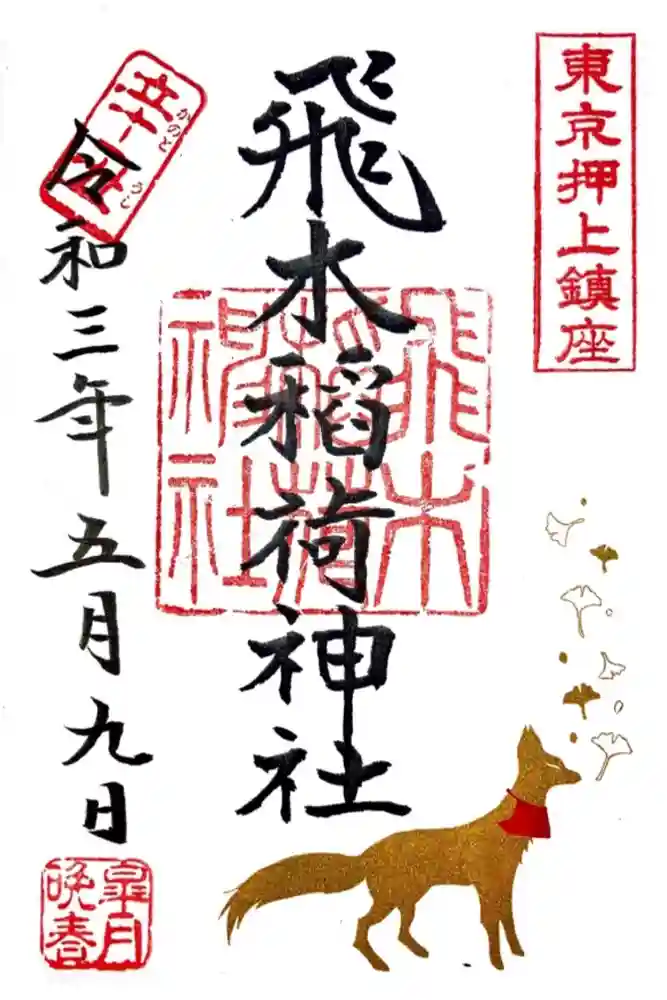 東京押上鎮座
飛木稲荷神社
飛木
稲荷
神社
辛丑
かのと
うし
令和三年五月九日
皐月
晩春